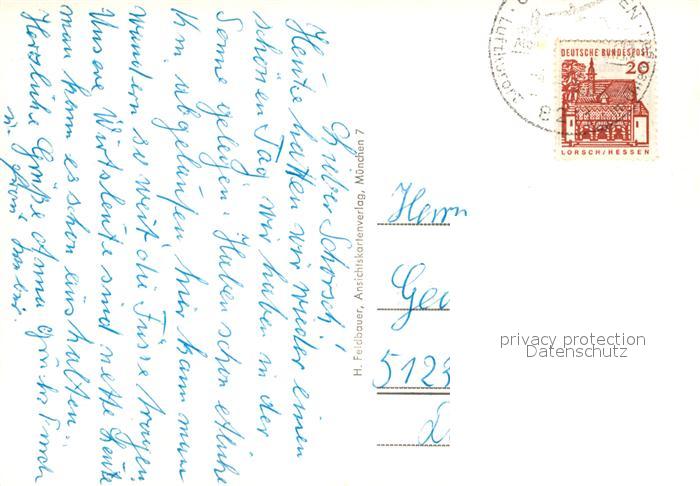 Lieber Schorsch!
Heute hatten wir wieder einen
schönen Tag wir haben in der
Sonne gelegen. Haben schon etliche
Km. abgelaufen hier kann man
wandern so weit die Füsse tragen.
Unsere Wirtsleute sind nette Leute
man kann es schon aushalten.
Herzliche Grüße Anna
u.
H. Feldbauer, Ansichtskartenverlag, München 7
DEUTSCHE BUNDESPOST
20
LORSCH/HESSEN
82
Herrn
Geo
5123
privacy protection
Datenschutz